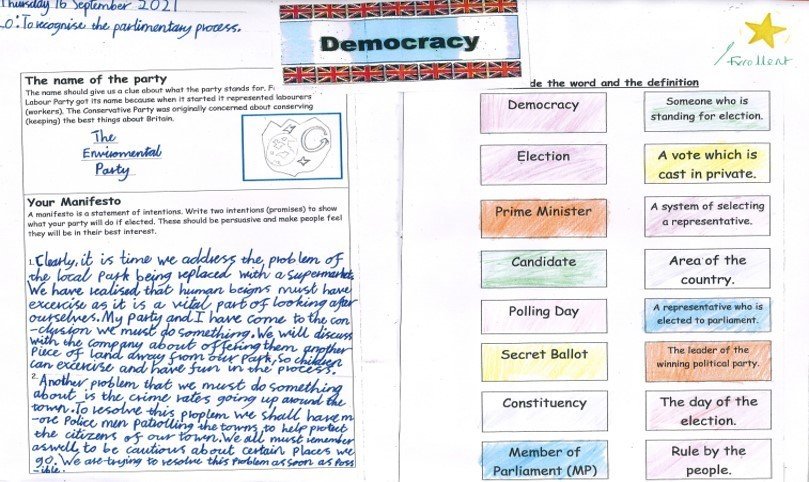 Thursday 16 September 2021
LO: To recognise the parlimentary process.
Democracy
Excellent
The name of the party
The name should give us a clue about what the party stands for.
Labour Party got its name because when it started it represented labourers
(workers). The Conservative Party was originally concerned about conserving
(keeping) the best things about Britain.
The
Enviromental
Party
Your Manifesto
A manifesto is a statement of intentions. Write two intentions (promises) to show
what your party will do if elected. These should be persuasive and make people feel
they will be in their best interest.
1. Clearly, it is time we address the problem of
the local park being replaced with a supermarket.
We have realised that human beigns must have
excercise as it is a vital part of looking after
ourselves. My party and I have come to the con
-clusion we must do something. We will discuss
with the company about offering them another
piece of land away from our park, so children
can excercise and have fun in the process.
2. Another problem that we must do something
about is the crime rates going up around the
town. To resolve this proplem we shall have m
-ore Police men patrolling the towns to help protect
the citizens of our town. We all must remember
aswell to be cautious about certain places we
go. We are trying to resolve this problem as soon as Poss
-ible.
de the word and the definition
Democracy
Someone who is
standing for election.
Election
A vote which is
cast in private.
Prime Minister
A system of selecting
a representative.
Candidate
Area of the
country.
Polling Day
A representative who is
elected to parliament.
Secret Ballot
The leader of the
winning political party.
Constituency
The day of the
election.
Member of
Parliament (MP)
Rule by the
people.